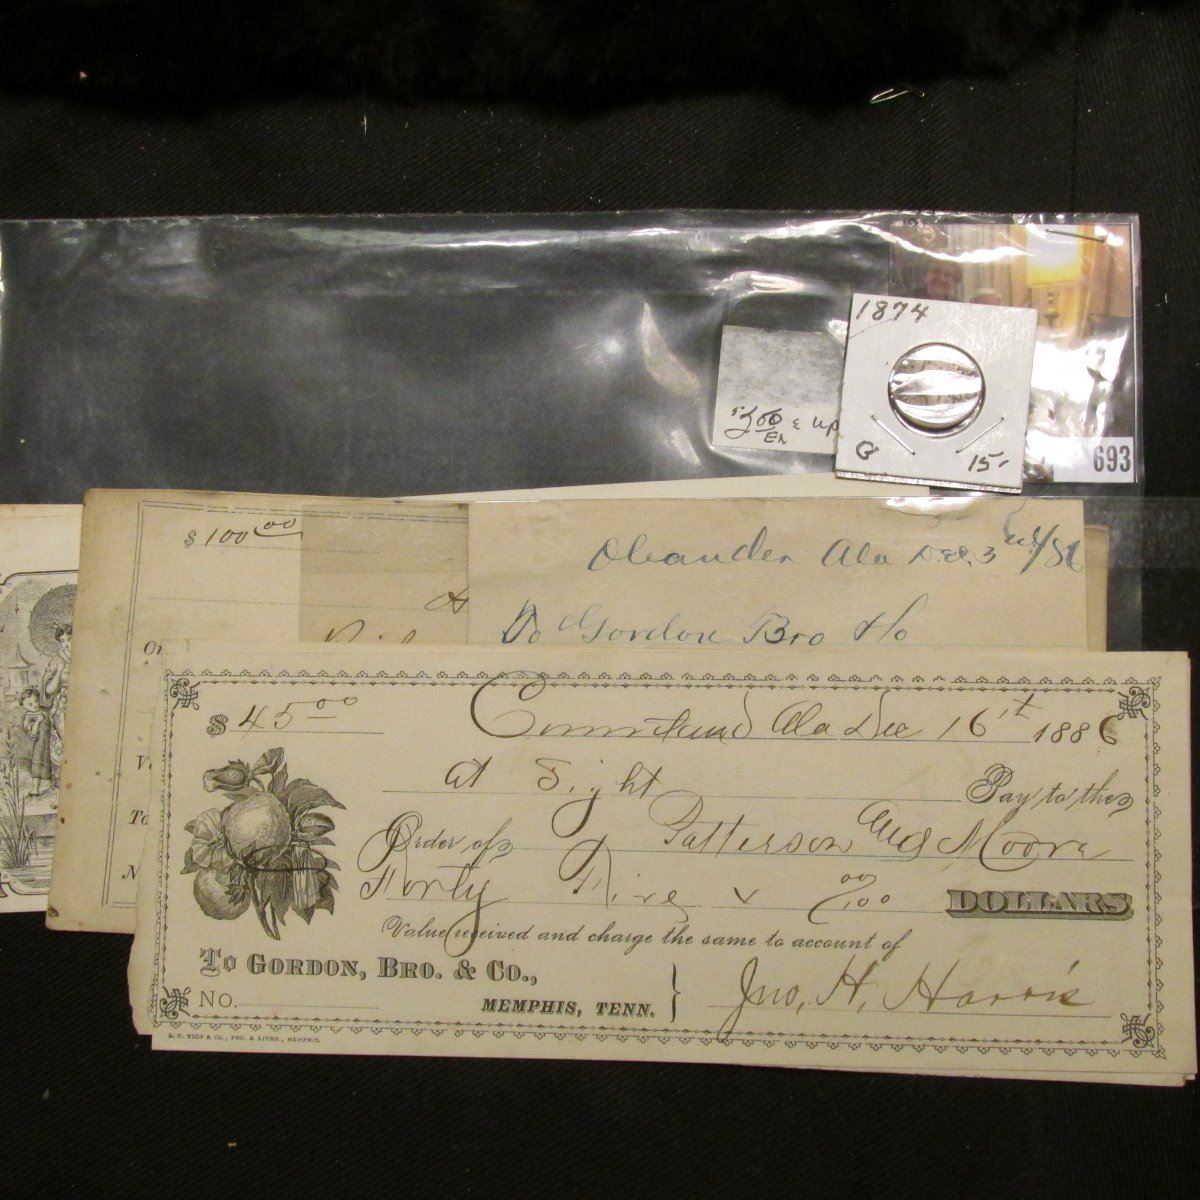 1874
$2.00 & up
Ea
G 15.
693
$ 100 00
Oleander Ala Dec. 3rd/86
To Gordon Bro & Co
Or
V
To
N
$ 45 00
Courtland Ala Dec 16th 1886
at Sight Pay to the
Order of Patterson and Moore
Forty Five & 00/100 DOLLARS
Value received and charge the same to account of
To GORDON, BRO. & CO.,
NO. MEMPHIS, TENN.
Jno. H. Harris
S. C. TOOF & CO., PRS. & LITHS., MEMPHIS.